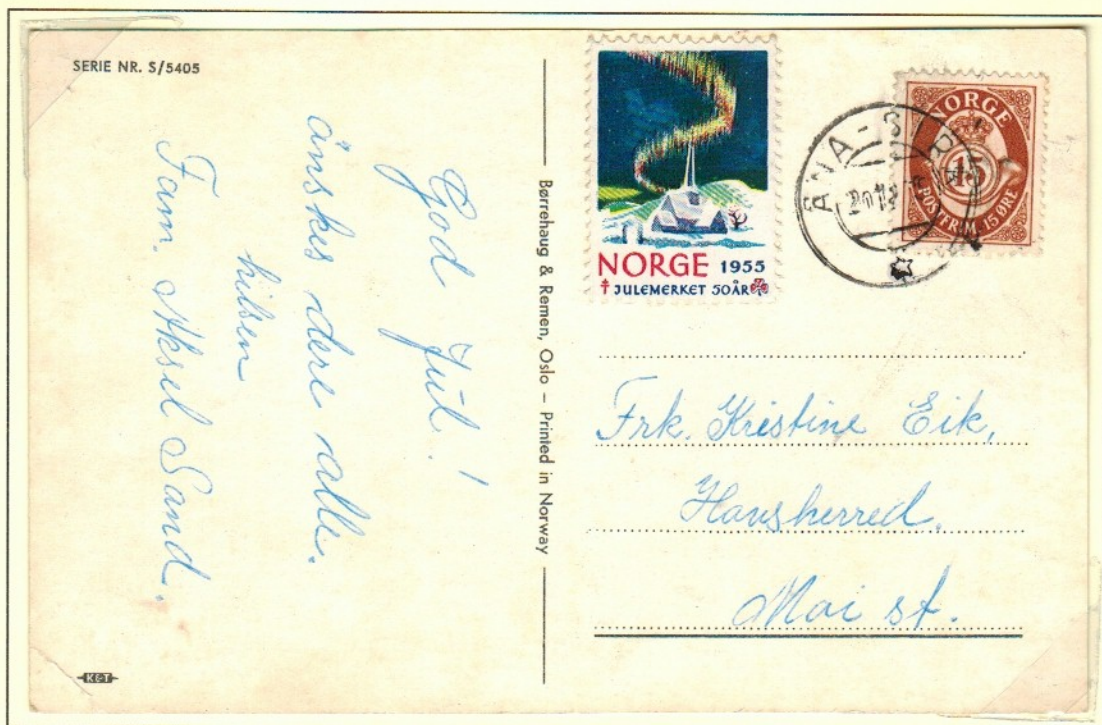 SERIE NR. S/5405
God Jul!
ønskes dere alle.
hilsen
Fam. Aksel Sand.
Børrehaug & Remen, Oslo – Printed in Norway
K&T
NORGE 1955
JULEMERKET 50 ÅR
ÅNA-SIRA
NORGE
15
POSTFRIM. 15 ØRE
Frk. Kristine Eik,
Haugherred.
Moi st.